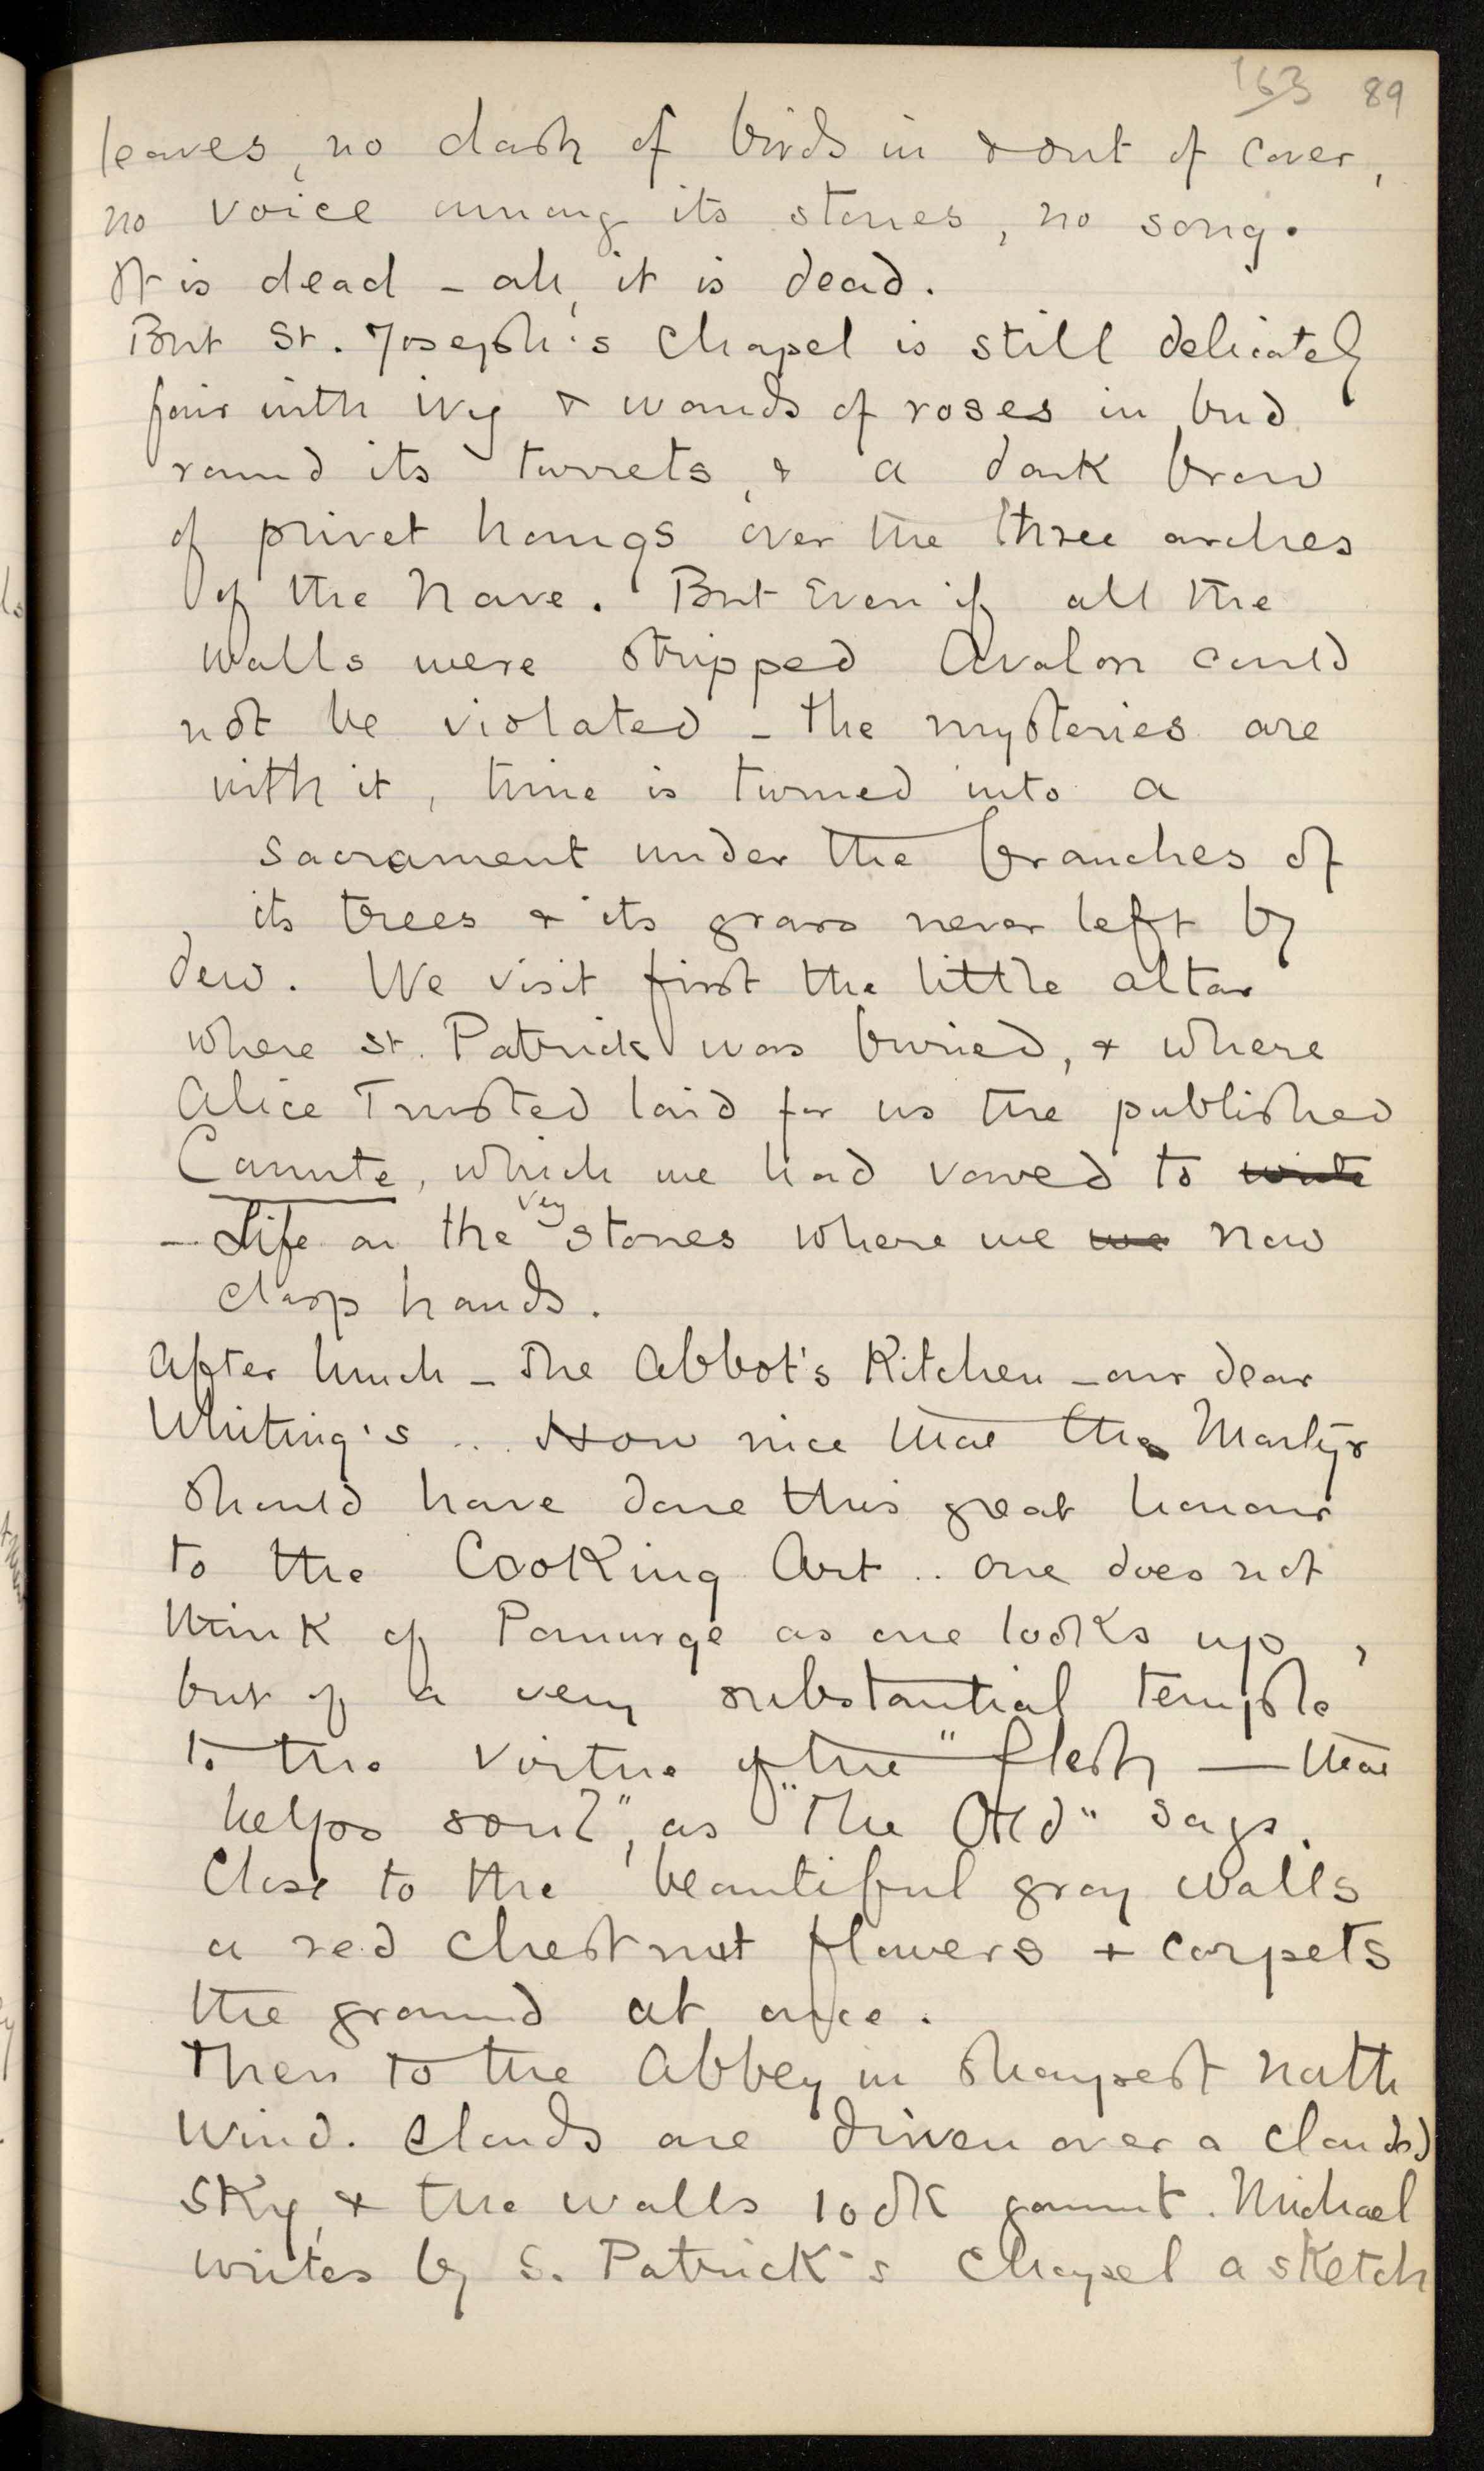 163 89
leaves, no dash of birds in & out of cover,
no voice among its stones, no song.
It is dead - ah, it is dead.
But St. Joseph's Chapel is still delicately
fair with ivy & wands of roses in bud
round its turrets, & a dark brow
of privet hangs over the three arches
of the Nave. But Even if all the
walls were stripped Avalon could
not be violated - the mysteries are
with it, time is turned into a
sacrament under the branches of
its trees & its grass never left by
dew. We visit first the little altar
where St. Patrick was buried, & where
Alice Trusted laid for us the published
Canute, which we had vowed to write
- Life on the very stones where we we now
clasp hands.
After lunch - The Abbot's Kitchen - our dear
Whiting's ... How nice that the Martyr
should have done this great honour
to the Cooking Art .. one does not
think of Panurge as one looks up,
but of a very substantial temple
to the virtue of the "flesh — that
helps soul", as "The Old" says.
Close to the beautiful gray walls
a red chestnut flowers + carpets
the ground at once.
Then to the Abbey in sharpest North
Wind. Clouds are driven over a clouded
sky, & the walls look gaunt. Michael
writes by S. Patrick's Chapel a sketch